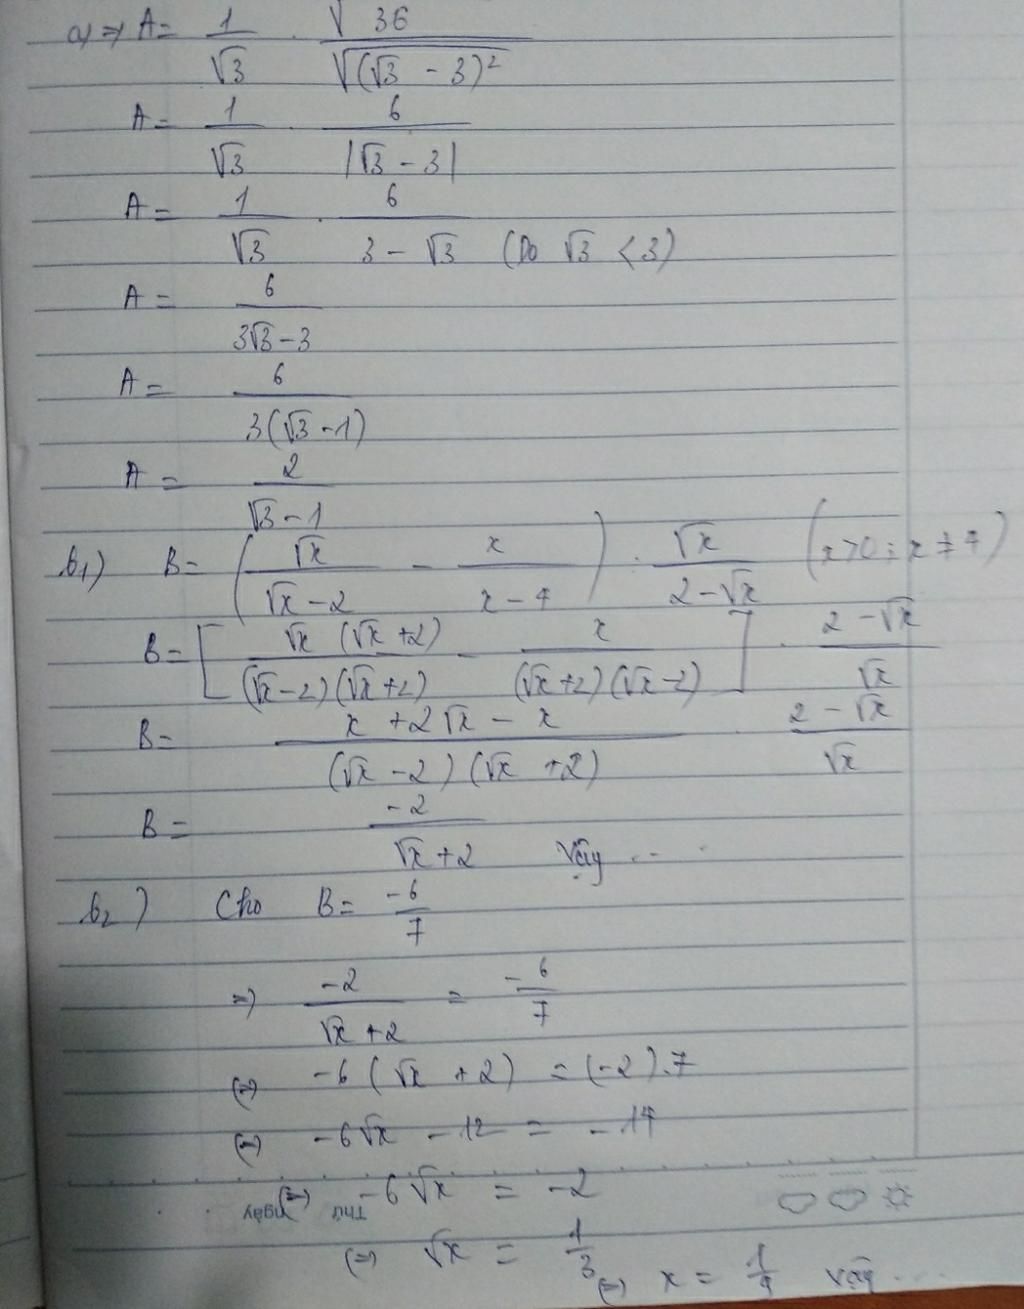 a) => A = 1/√3 . √36/√(√3 - 3)²
A = 1/√3 . 6/|√3 - 3|
A = 1/√3 . 6/3 - √3 (Do √3 < 3)
A = 6/3√3 - 3
A = 6/3(√3 - 1)
A = 2/√3 - 1
b₁) B = (√x/√x - 2 - x/x - 4) : √x/2 - √x (x > 0 ; x ≠ 4)
B = [√x (√x + 2)/(√x - 2)(√x + 2) - x/(√x + 2)(√x - 2)] . 2 - √x/√x
B = x + 2√x - x/(√x - 2)(√x + 2) . 2 - √x/√x
B = -2/√x + 2 Vậy ...
b₂) Cho B = -6/7
=> -2/√x + 2 = -6/7
(=) -6(√x + 2) = (-2).7
(=) -6√x - 12 = -14
(=) -6√x = -2
Thứ ngày
(=) √x = 1/3 (=) x = 1/9 vậy ...